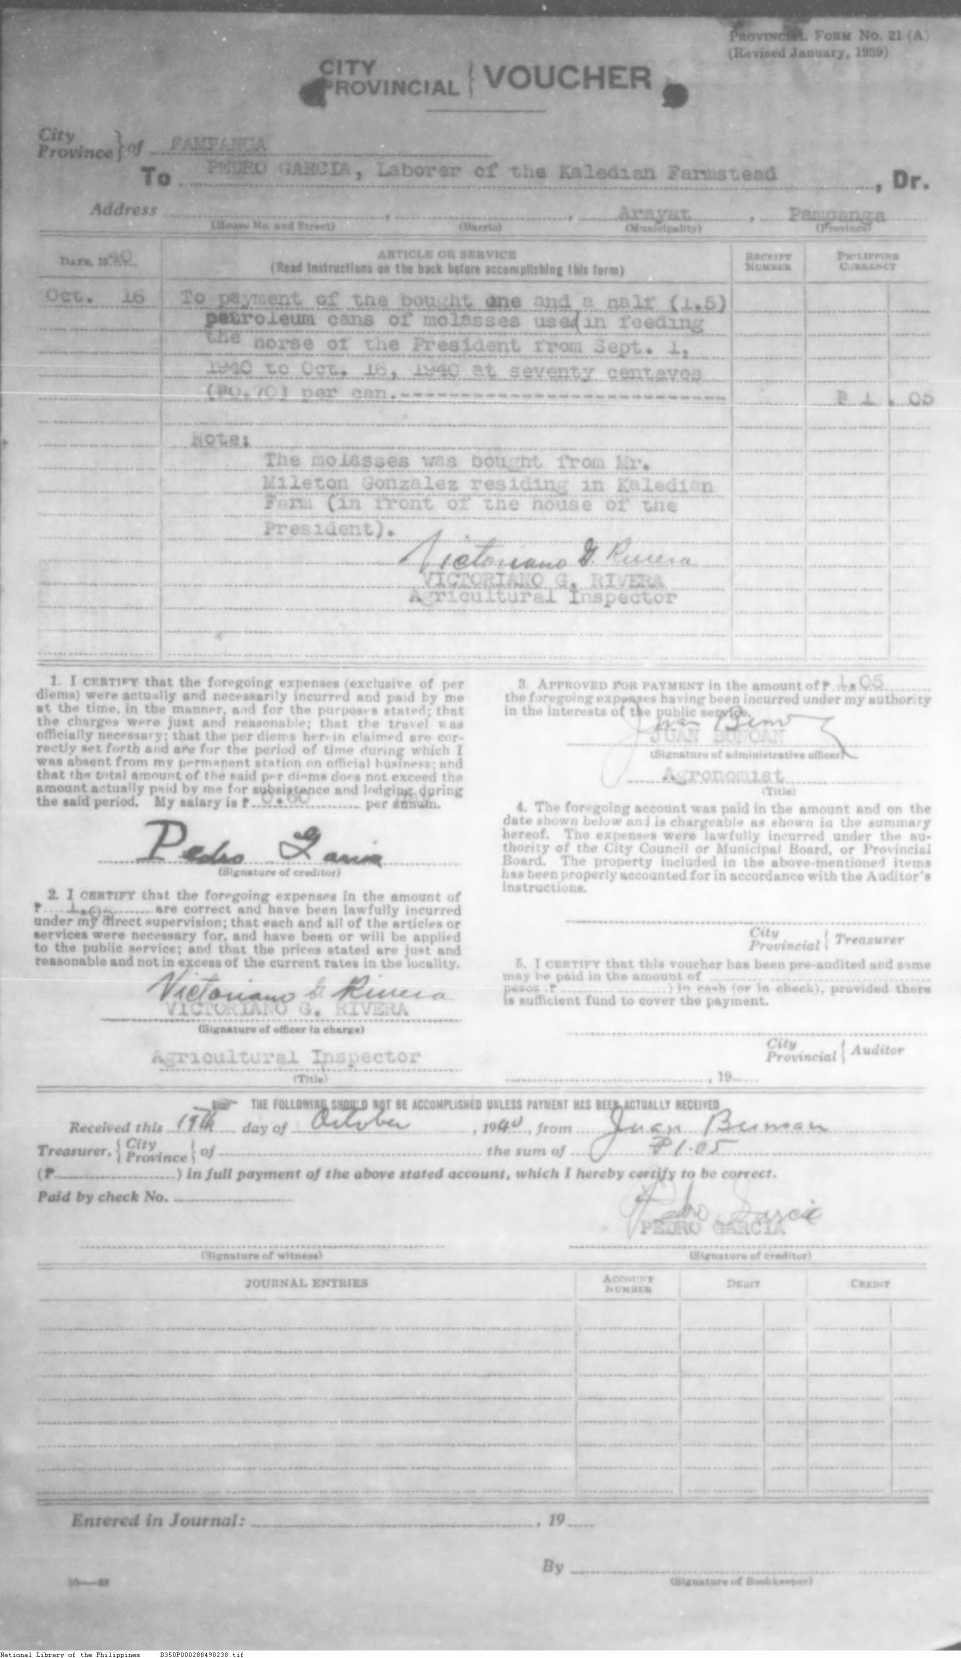 PROVINCIAL FORM NO. 21 (A)
(Revised January, 1939)
CITY
PROVINCIAL } VOUCHER
City
Province } of PAMPANGA
To PEDRO GARCIA, Laborer of the Kaledian Farmstead, Dr.
Address , , Arayat, Pampanga
(House No. and Street) (Barrio) (Municipality) (Province)
DATE, 1940 ARTICLE OR SERVICE RECEIPT NUMBER PHILIPPINE CURRENCY
(Read instructions on the back before accomplishing this form)
Oct. 16 To payment of the bought one and a half (1.5)
petroleum cans of molasses used in feeding
the horse of the President from Sept. 1,
1940 to Oct. 16, 1940 at seventy centavos
(₱0.70) per can.------------------------------ ₱ 1.05
Note:
The molasses was bought from Mr.
Mileton Gonzalez residing in Kaledian
Farm (in front of the house of the
President).
Victoriano G. Rivera
VICTORIANO G. RIVERA
Agricultural Inspector
1. I CERTIFY that the foregoing expenses (exclusive of per
diems) were actually and necessarily incurred and paid by me
at the time, in the manner, and for the purposes stated; that
the charges were just and reasonable; that the travel was
officially necessary; that the per diems herein claimed are cor-
rectly set forth and are for the period of time during which I
was absent from my permanent station on official business; and
that the total amount of the said per diems does not exceed the
amount actually paid by me for subsistence and lodging during
the said period. My salary is ₱ 0.60 per annum.
Pedro Garcia
(Signature of creditor)
2. I CERTIFY that the foregoing expenses in the amount of
₱ 1.05 are correct and have been lawfully incurred
under my direct supervision; that each and all of the articles or
services were necessary for, and have been or will be applied
to the public service; and that the prices stated are just and
reasonable and not in excess of the current rates in the locality.
Victoriano G. Rivera
VICTORIANO G. RIVERA
(Signature of officer in charge)
Agricultural Inspector
(Title)
3. APPROVED FOR PAYMENT in the amount of ₱ 1.05
the foregoing expenses having been incurred under my authority
in the interests of the public service.
Juan
JUAN
(Signature of administrative officer)
Agronomist
(Title)
4. The foregoing account was paid in the amount and on the
date shown below and is chargeable as shown in the summary
hereof. The expenses were lawfully incurred under the au-
thority of the City Council or Municipal Board, or Provincial
Board. The property included in the above-mentioned items
has been properly accounted for in accordance with the Auditor's
instructions.
City
Provincial { Treasurer
5. I CERTIFY that this voucher has been pre-audited and same
may be paid in the amount of
pesos ₱ ) in cash (or in check), provided there
is sufficient fund to cover the payment.
City
Provincial { Auditor
, 19
THE FOLLOWING SHOULD NOT BE ACCOMPLISHED UNLESS PAYMENT HAS BEEN ACTUALLY RECEIVED
Received this 19th day of October, 1940, from Juan
Treasurer, { City
Province } of the sum of ₱1.05
(₱ ) in full payment of the above stated account, which I hereby certify to be correct.
Paid by check No.
Pedro Garcia
PEDRO GARCIA
(Signature of witness) (Signature of creditor)
JOURNAL ENTRIES ACCOUNT NUMBER DEBIT CREDIT
Entered in Journal: , 19
By
(Signature of Bookkeeper)
National Library of the Philippines D350P000288490238.tif